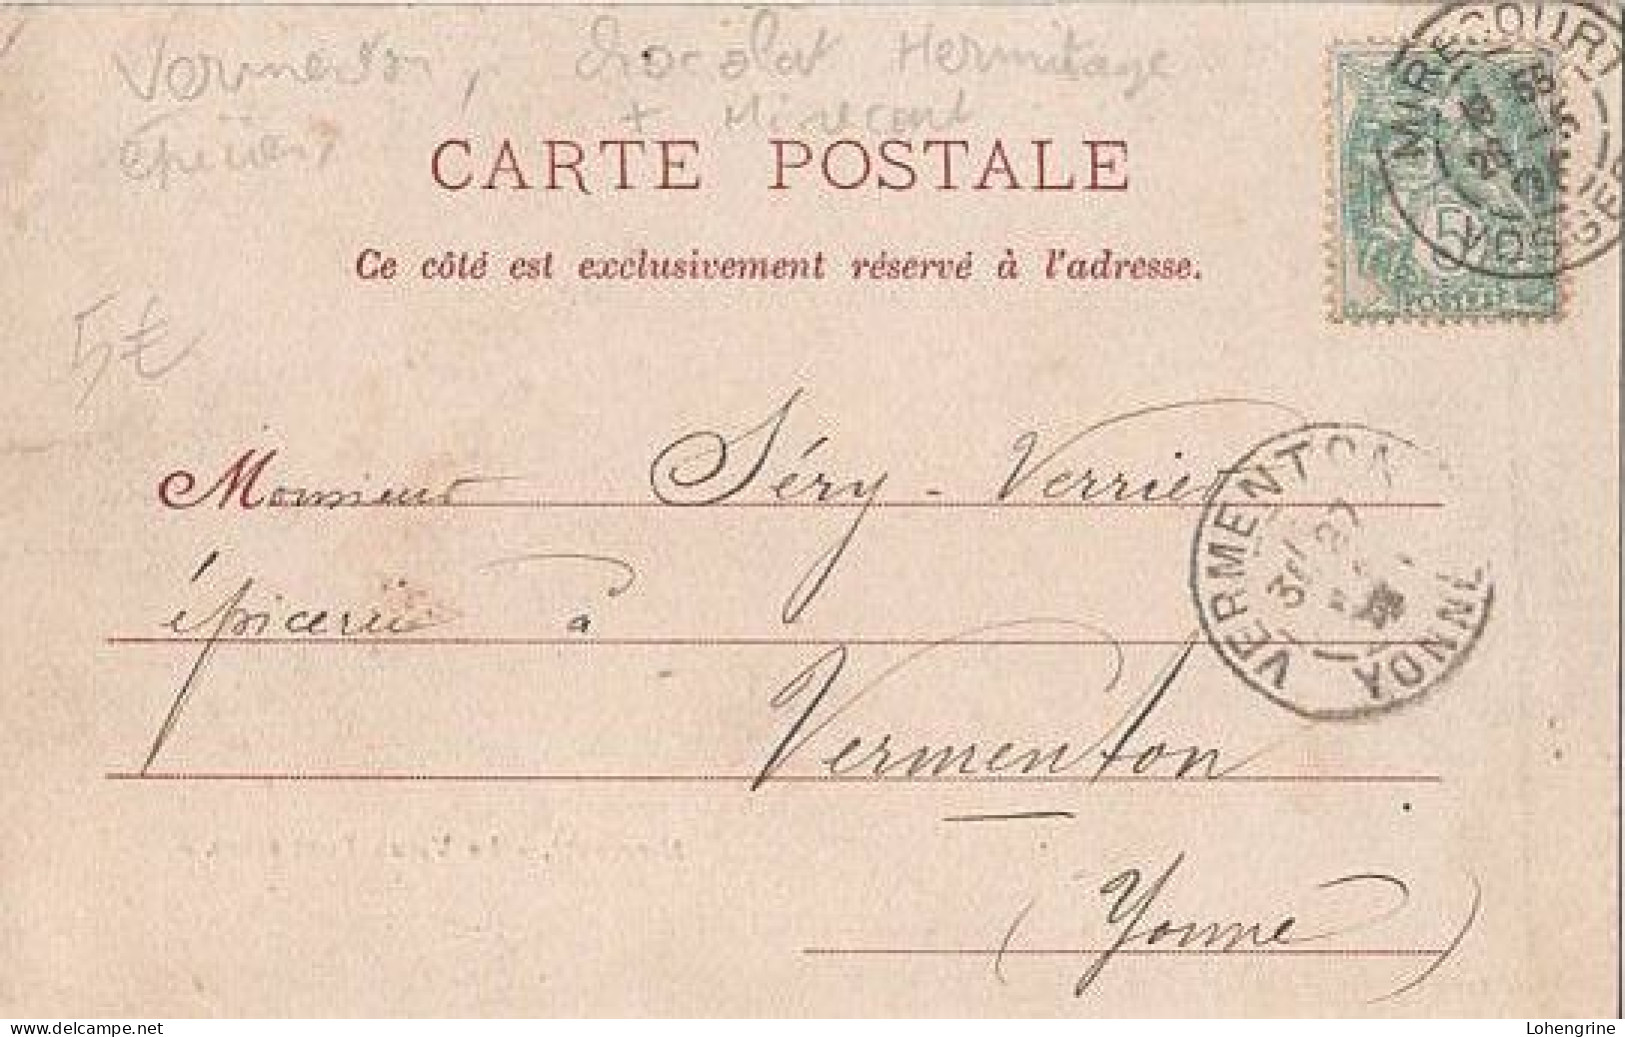 Vermenton, Chocolat Hermitage
épicier? + Mirecourt
CARTE POSTALE
Ce côté est exclusivement réservé à l'adresse.
MIRECOURT
VOSGES
POSTES
5€
Monsieur Séry - Verrier
VERMENTON
YONNE
épicerie à
Vermenton
(Yonne)
www.delcampe.net
Lohengrine